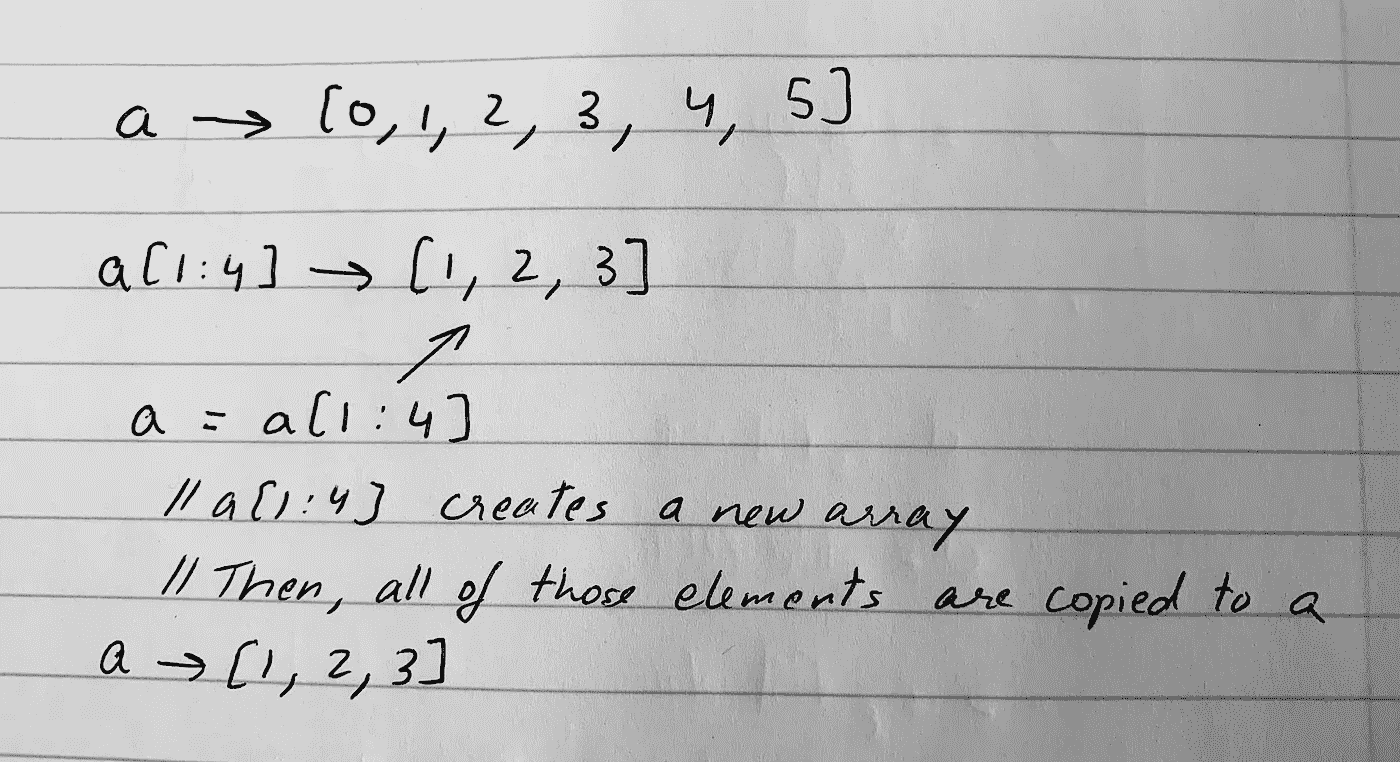 a → [0, 1, 2, 3, 4, 5]
a[1:4] → [1, 2, 3]
a = a[1:4]
// a[1:4] creates a new array
// Then, all of those elements are copied to a
a → [1, 2, 3]